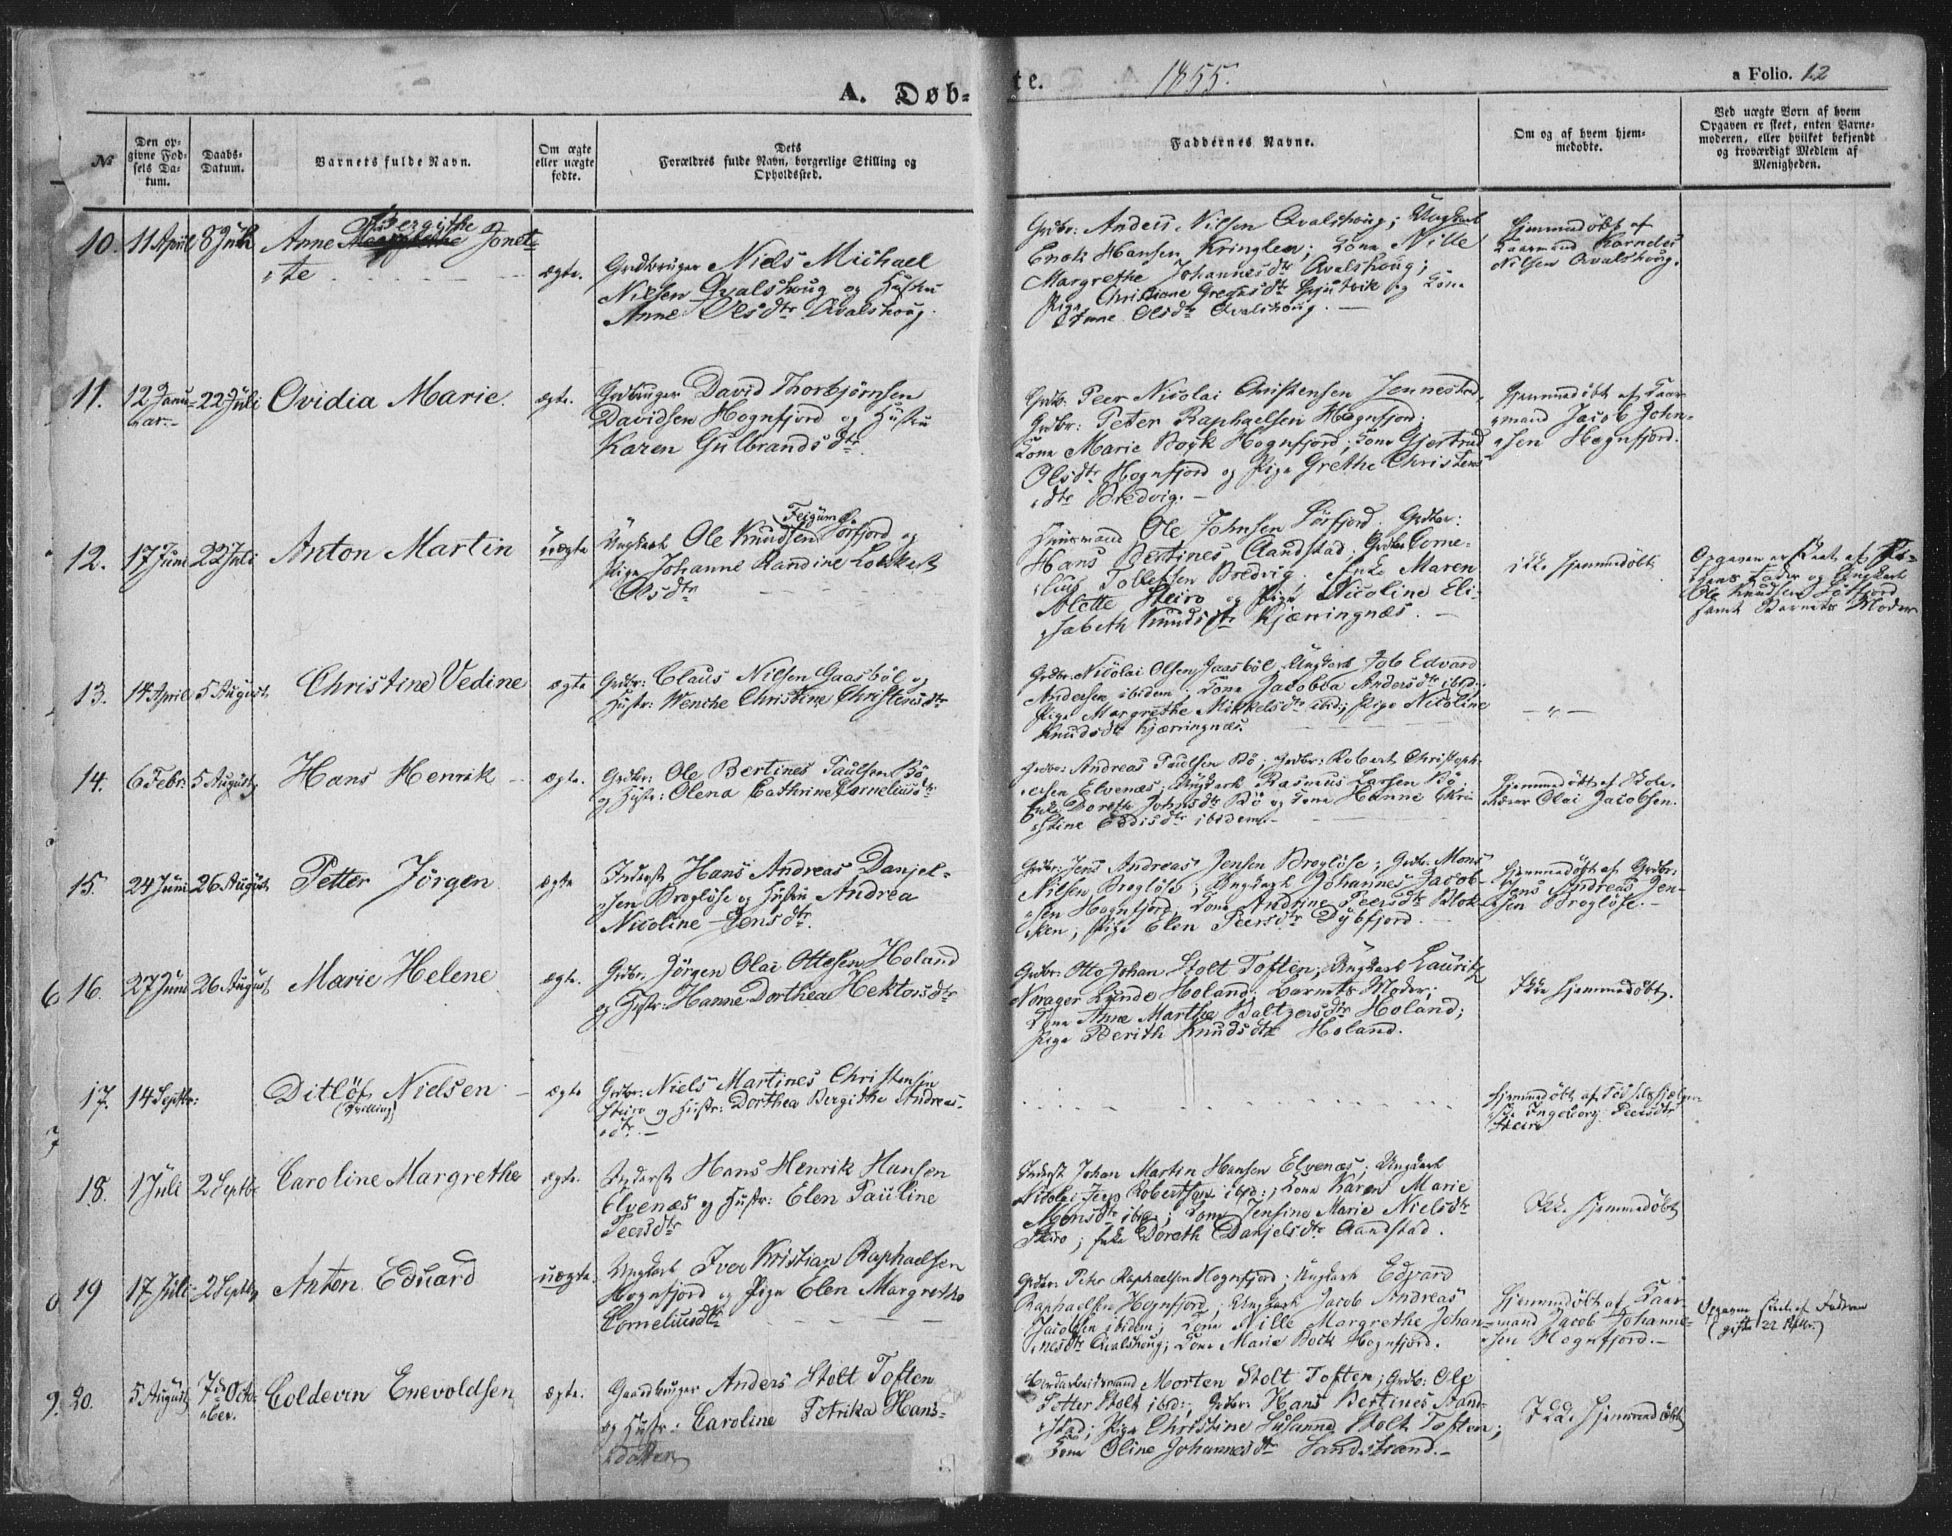 A. Døb=
te.
1855.
a Folio. 12
№
Den op-
givne Fød-
sels Da-
tum.
Daabs-
Datum.
Barnets fulde Navn.
Om ægte
eller uægte
fødte.
Dets
Forældres fulde Navn, borgerlige Stilling og
Opholdssted.
Faddernes Navne.
Om og af hvem hjem-
medøbte.
Ved uægte Børn af hvem
Opgaven er skeet, enten Barne-
moderen, eller hvilket bekjendt
og troværdigt Medlem af
Menigheden.
10. 11 April 8 Juli
Bergithe
Anne Jonet-
te
ægte.
Grdbruger Niels Michael
Nielsen Qvalshoug og Hustru
Anne Olsdtr Qvalshoug.
Grdbr: Anders Nilsen Qvalshoug; Ungkarl
Enok Hansen Kringlen; Kone Nille
Margrethe Johannesdtr Qvalshoug;
Pige Christiane Gregusdtr og Kone
Anne Olsdtr Qvalshoug.
Hjemmedøbt af
Kaarmand Kornelius
Nilsen Qvalshoug.
11. 12 Janu-
ar. 22 Juli
Ovidia Marie.
ægte.
Grdbruger David Thorbjørnsen
Davidsen Hognfjord og Hustru
Karen Gulbrandsdtr.
Grdb. Peer Nicolai Christensen Jennestad,
Grdbr: Peter Raphaelsen Hognfjord;
Kone Marie Bock Hognfjord; Kone Gjertrud
Olsdtr Hognfjord og Pige Grethe Christens-
dtr Bredvig.
Hjemmedøbt af Kaar-
mand Jacob John-
sen Hognfjord.
12. 17 Juni 22 Juli
Anton Martin
uægte
Ungkarl Ole Knudsen Sørfjord og
Pige Johanne Randine
Olsdtr
Huusmand Ole Johnsen Sørfjord. Grdbr:
Hans Bertines Aandstad; Grdbr Corne-
lius Tollefsen Bredvig; Enke Maren
Alette Steiro og Pige Nicoline Eli-
sabeth Knudsdtr Kjærringnæs.
ikke hjemmedøbt
Opgaven er skeet af
Fader og Ungkarl
Ole Knudsen Sørfjord
samt Barnets Moder
13. 14 April 5 August
Christine Vedine
ægte
Grdbr: Claus Nilsen Gaasbøl og
Hustr: Wenche Christine Christensdtr
Grdbr: Nicolai Olsen Gaasbøl, Ungkarl Job Edvard
Andersen ibidem; Kone Jacobea Andersdtr ibid:;
Pige Margrethe Mikkelsdtr ibid; Pige Nicoline
Knudsdtr Kjærringnæs.
— " —
14. 6 Febr: 5 August
Hans Henrik
ægte.
Grdbr: Ole Bertines Paulsen Bø
og Hustr: Olena Cathrine Corneliusdtr
Grdbr: Andreas Paulsen Bø; Grdbr: Robert Christoph-
ersen Elvenæs; Ungkarl Rasmus Larsen Bø
Enke Doreth Johnsdtr Bø og Kone Hanne Chri-
stine Eddisdtr ibidem.
Hjemmedøbt af Skole-
lærer Olai Jacobsen.
15. 24 Juni 26 August
Petter Jørgen
ægte
Inderst Hans Andreas Danjel-
sen Brogløse og Hustru Andrea
Nicoline Jensdtr.
Grdbr: Jens Andreas Jensen Brogløse; Grdb. Mons
Nilsen Brogløse; Ungkarl Johannes Jacob-
sen Hognfjord; Kone Andrine Peersdtr Blok-
ken; Pige Elen Peersdtr Dybfjord
Hjemmedøbt af Grdbr:
Jens Andreas Jen-
sen Brogløse.
16. 27 Juni 26 August
Marie Helene
ægte.
Grdbr: Jørgen Olai Ottesen Holand
og Hustr: Hanne Dorthea Hektorsdtr
Grdbr: Otto Johan Stolt Toften; Ungkarl Lauritz
Norager Lunde Holand; Barnets Moder;
Kone Anne Marthe Baltzersdtr Holand;
Pige Berith Knudsdtr Holand.
Ikke hjemmedøbt.
17. 14 Septbr:
Ditløf Nielsen
(Tvilling)
ægte
Grdbr: Niels Martines Christensen
Steiro og Hustr: Dorthea Bergithe Andreas-
dtr.
Hjemmedøbt af Fødselshjælper-
ske Ingeborg Peersdtr
Steiro
18. 1 Juli 2 Septbr
Caroline Margrethe
ægte.
Inderst Hans Henrik Hansen
Elvenæs og Hustr: Elen Pauline
Peersdtr
Inderst Johan Martin Hansen Elvenæs; Ungkarl
Nicolai Jens Robertsen ibid:; Kone Karen Marie
Monsdtr ibid; Kone Jensine Marie Nielsdtr
Steiro; Enke Doreth Danjelsdtr Aandstad.
Ikke hjemmedøbt
19 17 Juli 2 Septbr
Anton Edvard
uægte.
Ungkarl Iver Kristian Raphaelsen
Hognfjord og Pige Elen Margrethe
Corneliusdtr
Grdbr: Peter Raphaelsen Hognfjord; Ungkarl Edvard
Raphaelsen Hognfjord; Ungkarl Jacob Andreas
Jacobsen ibidem; Kone Nille Margrethe Johan-
nesdtr Qvalshoug; Kone Marie Bock Hognfjord.
Hjemmedøbt af Kaar-
mand Jacob Johanne-
sen Hognfjord.
Opgaven skeet af Faderen
(gifte 22 Septbr.)
20. 5 August 7de Octo-
ber.
Coldevin Enevoldsen
ægte.
Gaardbruger Anders Stolt Toften
og Hustr: Caroline Petrika Hans-
datter
Jordarbeidsmand Morten Stolt Toften; Grdb: Ole
Petter Stolt ibid:; Grdbr: Hans Bertines Aand-
stad; Pige Christine Susanna Stolt Toften;
Kone Oline Johannesdtr Sandstrand.
Ikke hjemmedøbt